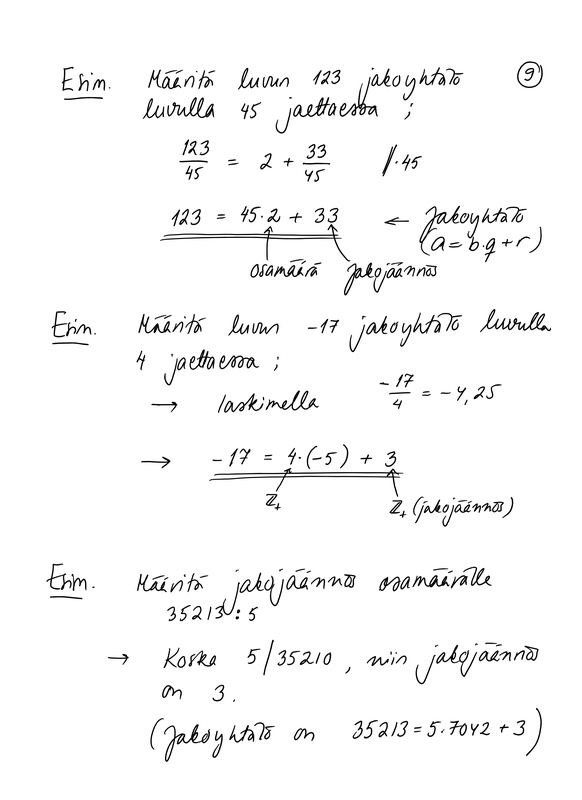 Esim. Määritä luvun 123 jakoyhtälö 9
luvulla 45 jaettaessa ;
123/45 = 2 + 33/45 ||·45
123 = 45·2 + 33 ← Jakoyhtälö
(a = b·q + r)
osamäärä jakojäännös
Esim. Määritä luvun -17 jakoyhtälö luvulla
4 jaettaessa ;
→ laskimella -17/4 = -4,25
→ -17 = 4·(-5) + 3
ℤ₊ ℤ₊ (jakojäännös)
Esim. Määritä jakojäännös osamäärälle
35213 : 5
→ Koska 5/35210 , niin jakojäännös
on 3.
(Jakoyhtälö on 35213 = 5·7042 + 3)